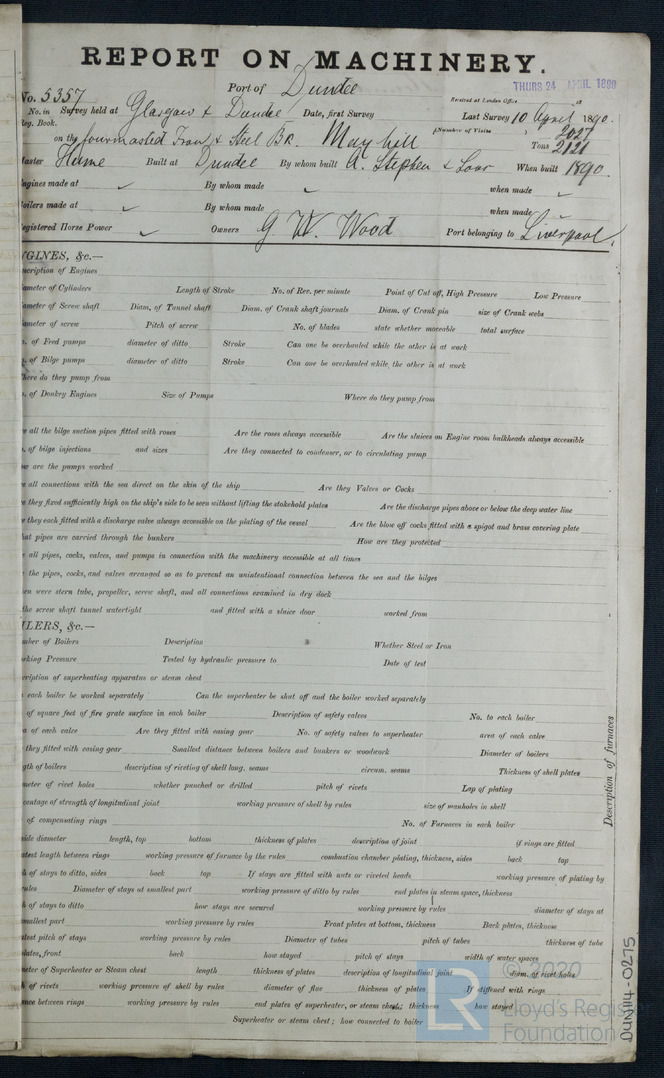 REPORT ON MACHINERY.
Port of Dundee
THURS 24 APRIL 1890
Received at London Office
No. 5357
No. in Survey held at Glasgow & Dundee Date, first Survey Last Survey 10 April 1890.
Reg. Book.
(Number of Visits )
on the fourmasted Iron & Steel Bk. Mayhill Tons 2027
2121
Master Hume Built at Dundee By whom built A. Stephen & Sons When built 1890.
Engines made at ✓ By whom made ✓ when made ✓
Boilers made at ✓ By whom made ✓ when made ✓
Registered Horse Power ✓ Owners G W. Wood Port belonging to Liverpool.
NGINES, &c.—
scription of Engines
ameter of Cylinders Length of Stroke No. of Rev. per minute Point of Cut off, High Pressure Low Pressure
ameter of Screw shaft Diam. of Tunnel shaft Diam. of Crank shaft journals Diam. of Crank pin size of Crank webs
ameter of screw Pitch of screw No. of blades state whether moveable total surface
. of Feed pumps diameter of ditto Stroke Can one be overhauled while the other is at work
. of Bilge pumps diameter of ditto Stroke Can one be overhauled while the other is at work
here do they pump from
. of Donkey Engines Size of Pumps Where do they pump from
e all the bilge suction pipes fitted with roses Are the roses always accessible Are the sluices on Engine room bulkheads always accessible
. of bilge injections and sizes Are they connected to condenser, or to circulating pump
ow are the pumps worked
e all connections with the sea direct on the skin of the ship Are they Valves or Cocks
e they fixed sufficiently high on the ship's side to be seen without lifting the stokehold plates Are the discharge pipes above or below the deep water line
e they each fitted with a discharge valve always accessible on the plating of the vessel Are the blow off cocks fitted with a spigot and brass covering plate
hat pipes are carried through the bunkers How are they protected
e all pipes, cocks, valves, and pumps in connection with the machinery accessible at all times
e the pipes, cocks, and valves arranged so as to prevent an unintentional connection between the sea and the bilges
en were stern tube, propeller, screw shaft, and all connections examined in dry dock
the screw shaft tunnel watertight and fitted with a sluice door worked from
ILERS, &c.—
mber of Boilers Description Whether Steel or Iron
rking Pressure Tested by hydraulic pressure to Date of test
cription of superheating apparatus or steam chest
each boiler be worked separately Can the superheater be shut off and the boiler worked separately
. of square feet of fire grate surface in each boiler Description of safety valves No. to each boiler
a of each valve Are they fitted with easing gear No. of safety valves to superheater area of each valve
they fitted with easing gear Smallest distance between boilers and bunkers or woodwork Diameter of boilers
gth of boilers description of riveting of shell long. seams circum. seams Thickness of shell plates
meter of rivet holes whether punched or drilled pitch of rivets Lap of plating
centage of strength of longitudinal joint working pressure of shell by rules size of manholes in shell
of compensating rings No. of Furnaces in each boiler
Description of furnaces
side diameter length, top bottom thickness of plates description of joint if rings are fitted
atest length between rings working pressure of furnace by the rules combustion chamber plating, thickness, sides back top
h of stays to ditto, sides back top If stays are fitted with nuts or riveted heads working pressure of plating by
ules Diameter of stays at smallest part working pressure of ditto by rules end plates in steam space, thickness
h of stays to ditto how stays are secured working pressure by rules diameter of stays at
smallest part working pressure by rules Front plates at bottom, thickness Back plates, thickness
atest pitch of stays working pressure by rules Diameter of tubes pitch of tubes thickness of tube
plates, front back how stayed pitch of stays width of water spaces
meter of Superheater or Steam chest length thickness of plates description of longitudinal joint diam. of rivet holes
h of rivets working pressure of shell by rules diameter of flue thickness of plates If stiffened with rings
ance between rings working pressure by rules end plates of superheater, or steam chest; thickness how stayed
Superheater or steam chest; how connected to boiler
LR
© 2020
Lloyd's Register
Foundation
DUN114-0275